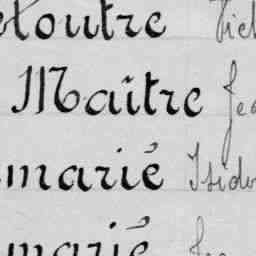 eloutre Vict
Maître Jea
marié Isido
marié Jea